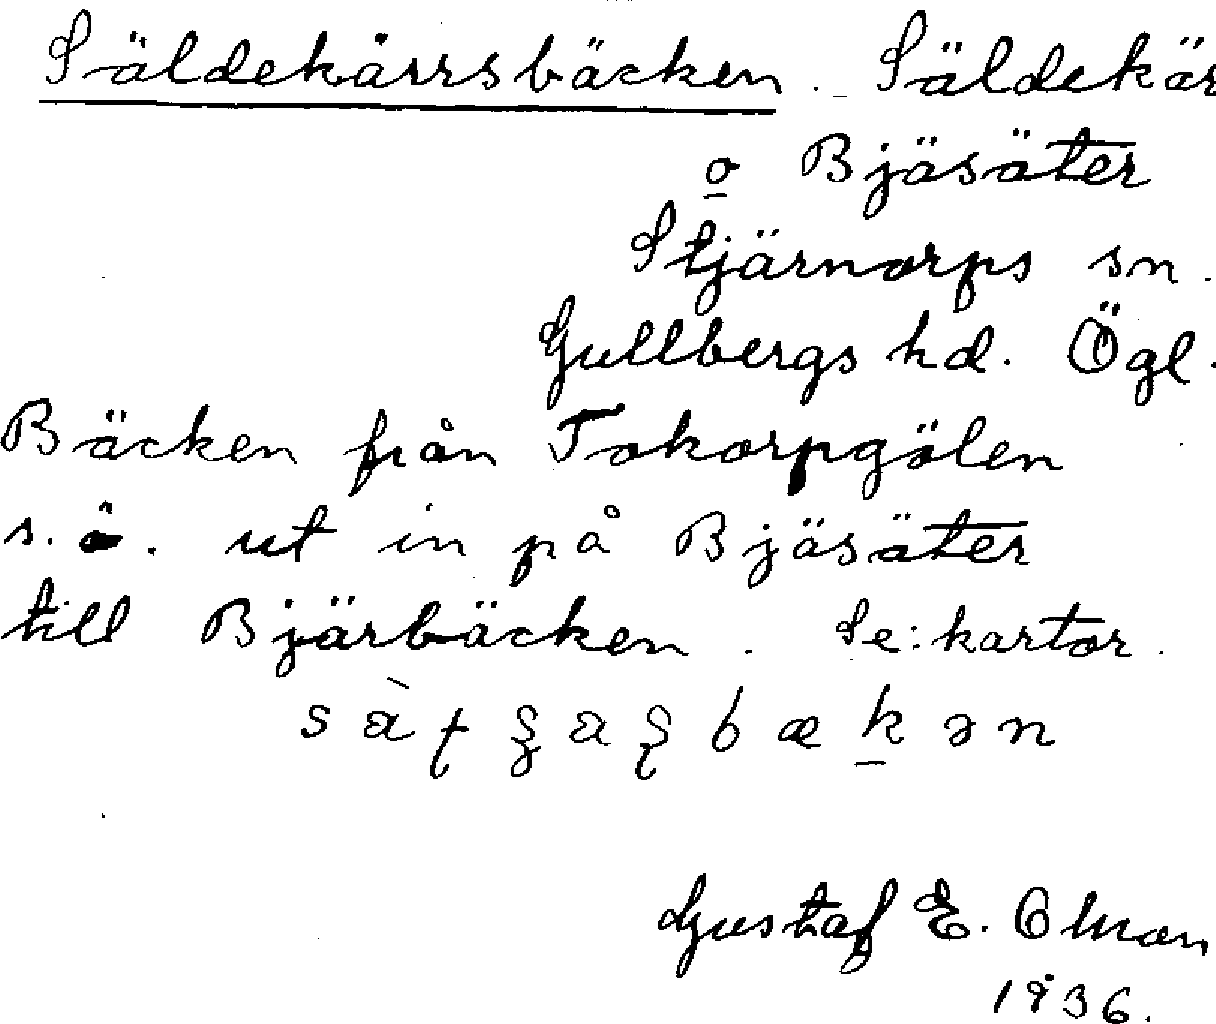 Säldekärrsbäcken. Säldekär
o Bjäsäter
Stjärnorps sn.
Gullbergs hd. Ögl.
Bäcken från Tokorpgölen
s.ö. ut in på Bjäsäter
till Bjärbäcken. Se: kartor.
Gustaf E.
1936.